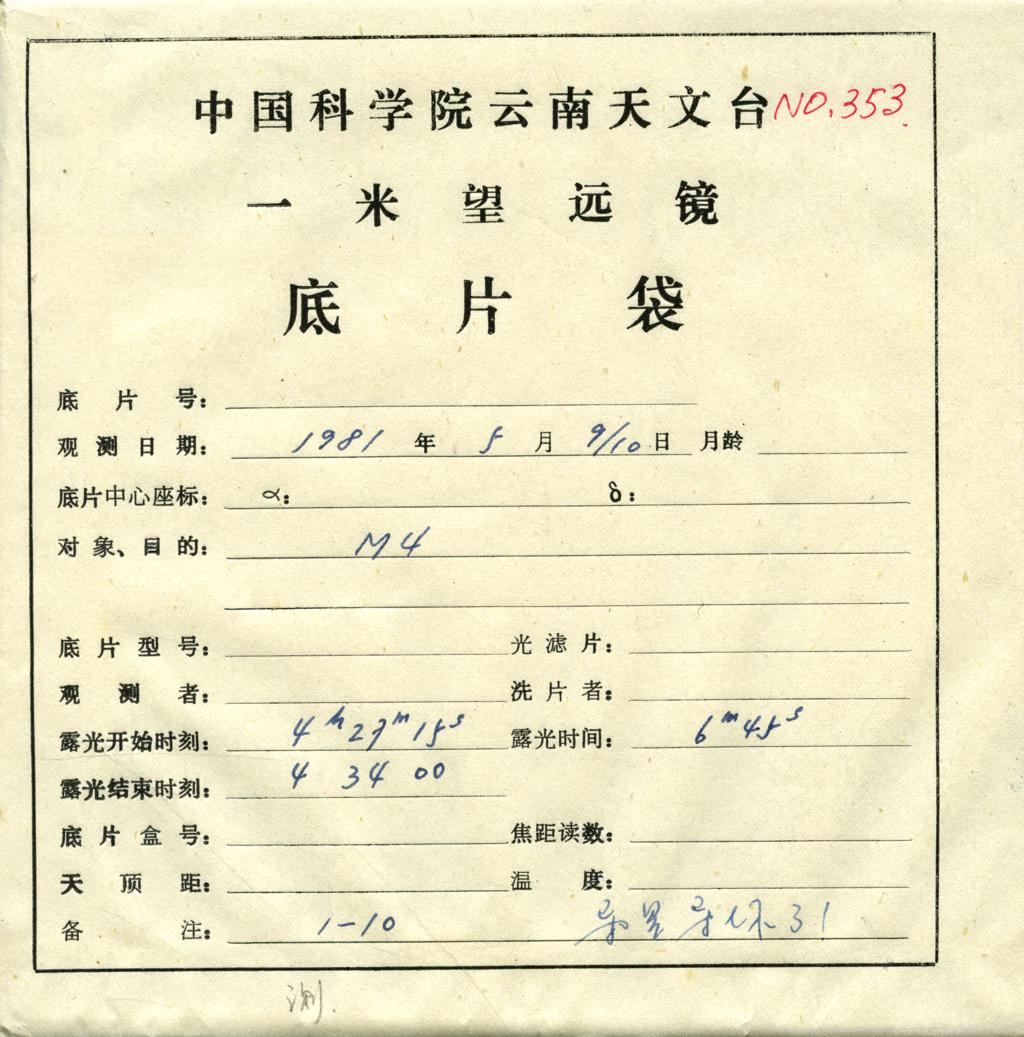 中国科学院云南天文台 NO.353.
一米望远镜
底片袋
底片号：
观测日期： 1981 年 5 月 9/10 日 月龄
底片中心座标： α： δ：
对象、目的： M4
底片型号： 光滤片：
观测者： 洗片者：
露光开始时刻： 4h 27m 15s 露光时间： 6m 45s
露光结束时刻： 4 34 00
底片盒号： 焦距读数：
天顶距： 温度：
备注： 1-10 导星导坏了!
测.